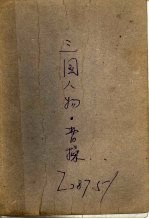 三国人物·曹操
Z287.5/